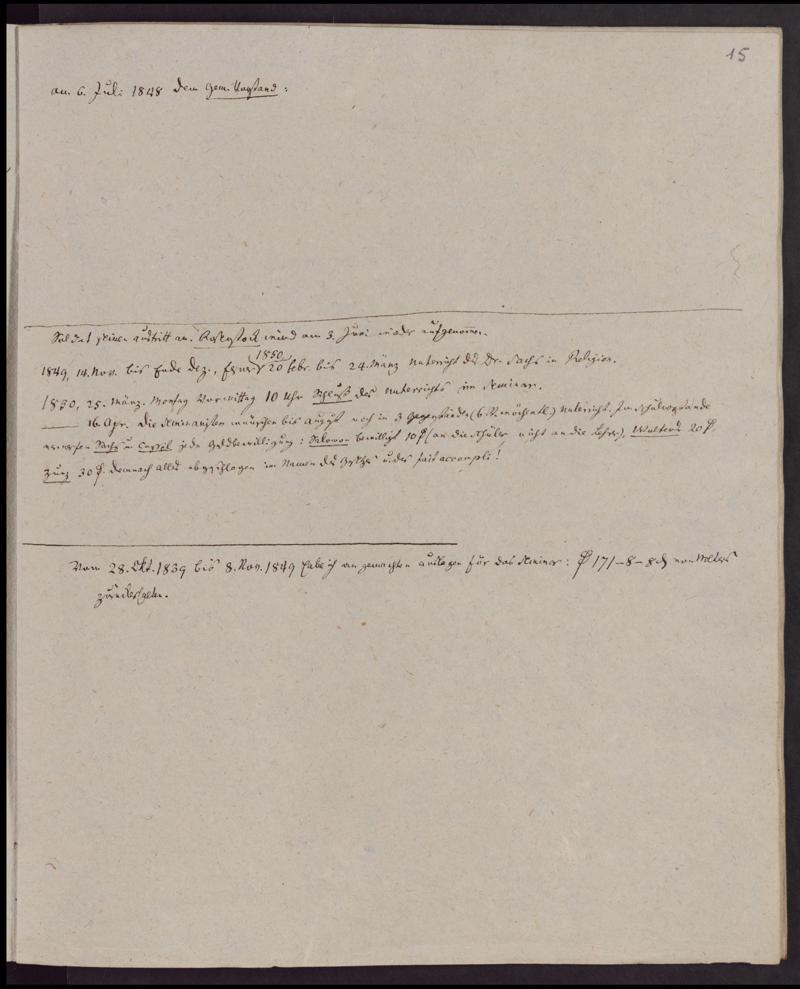 15
am 6. Juli 1848 dem Gem. Vorstand:
Sal dat seinen Austritt an. Rosenstock wird am 3. Juni wieder aufgenommen.
1849, 14. Nov. bis Ende Dez., ferner 1850 20 Febr. bis 24. März Unterricht des Dr. Sachs in Religion.
1850, 25. März. Montag Vormittag 10 Uhr Schluß des Unterrichts im Seminar.
—— 16. Apr. die Seminaristen wünschen bis August noch in 3 Gegenständen (6 St. wöchentl.) Unterricht. Im Schulvorstande
verwerfen Sachs u Cassel jede Geldbewilligung: Salomon bewilligt 10 (an die Schüler, nicht an die Lehrer), Wolters 20
Zunz 30. Demnach alles abgeschlagen im Namen des Gesetzes u. des fait accompli!
Vom 28. Okt. 1839 bis 8. Nov. 1849 habe ich an gemachten Auslagen für das Seminar: 171–8–8 von Wolters
zurückerhalten.